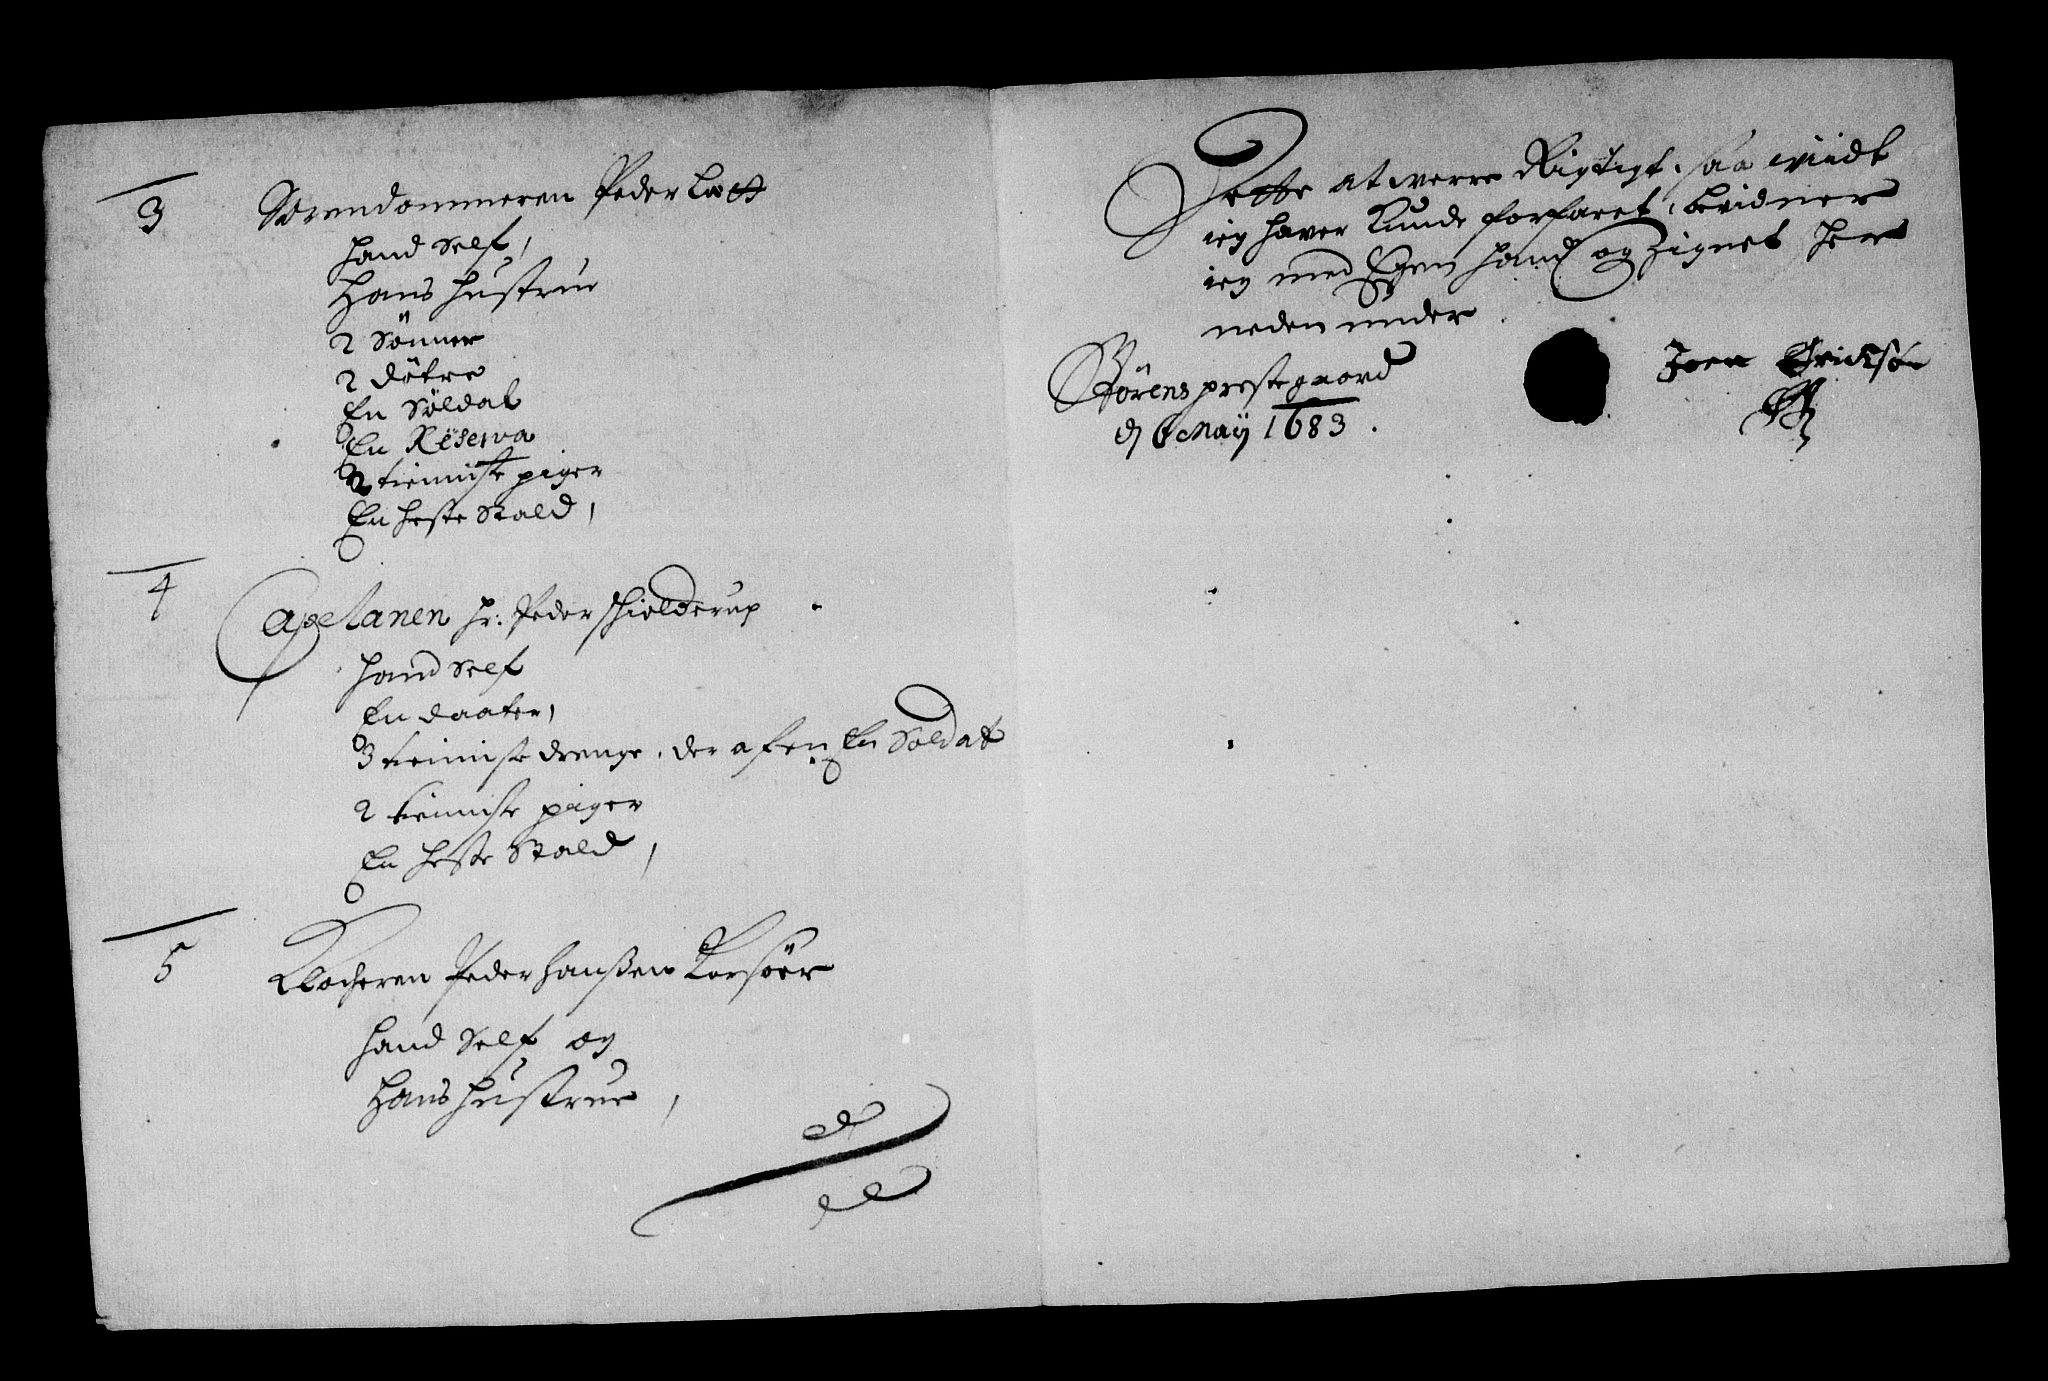 3
Sorendommeren Peder Lott
hand Self,
Hans hustrue
2 Sönner
2 dötre
En Söldat
En Reserva
2 tienniste piger
En heste Stald,
4
Capelanen hr: Peder Schielderup
hand Self
En daater,
3 tienniste drenge, der af en En Soldat
2 tienniste piger
En heste Stald,
5
Klocheren Peder Hanßen Korsöer
hand Self og
Hans hustrue,
Dette at werre Rigtigt, saa wiidt
ieg haver Kunde forfaret, bevidner
ieg med Egen hand og Zignet her
neden under
Störens prestegaard
d 6 Maÿ 1683.
Joen Erichsøn